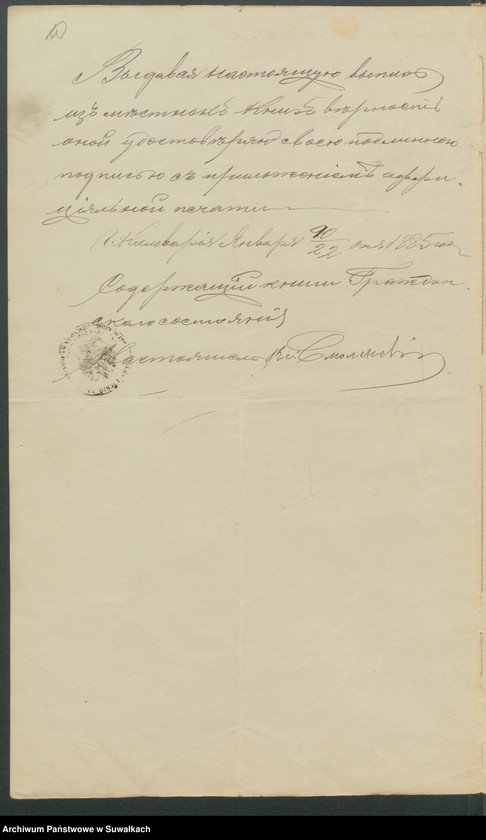 Выдавая настоящую выпись
изъ мѣстныхъ книгъ вѣрность
оной удостовѣряю своею подлинною
подписью съ приложеніемъ оффи-
ціяльной печати
г. Кальварія Января 10/22 дня 1885 года
Содержащій книги Граждан
скаго состоянія
Настоятель Кс. Смол
Archiwum Państwowe w Suwałkach